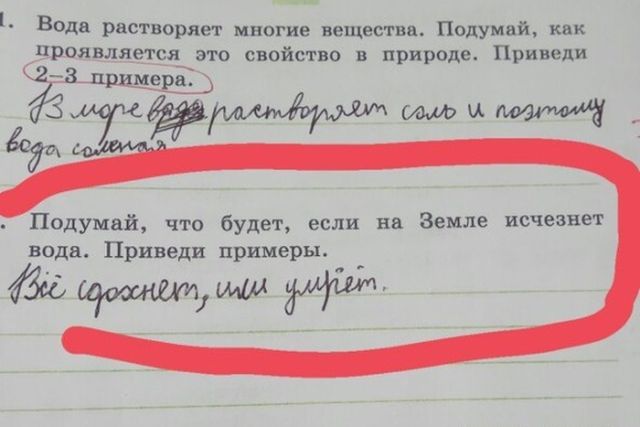 1. Вода растворяет многие вещества. Подумай, как
проявляется это свойство в природе. Приведи
2–3 примера.
В море вода растворяет соль и поэтому
вода соленая
. Подумай, что будет, если на Земле исчезнет
вода. Приведи примеры.
Всё сдохнет, или умрёт.